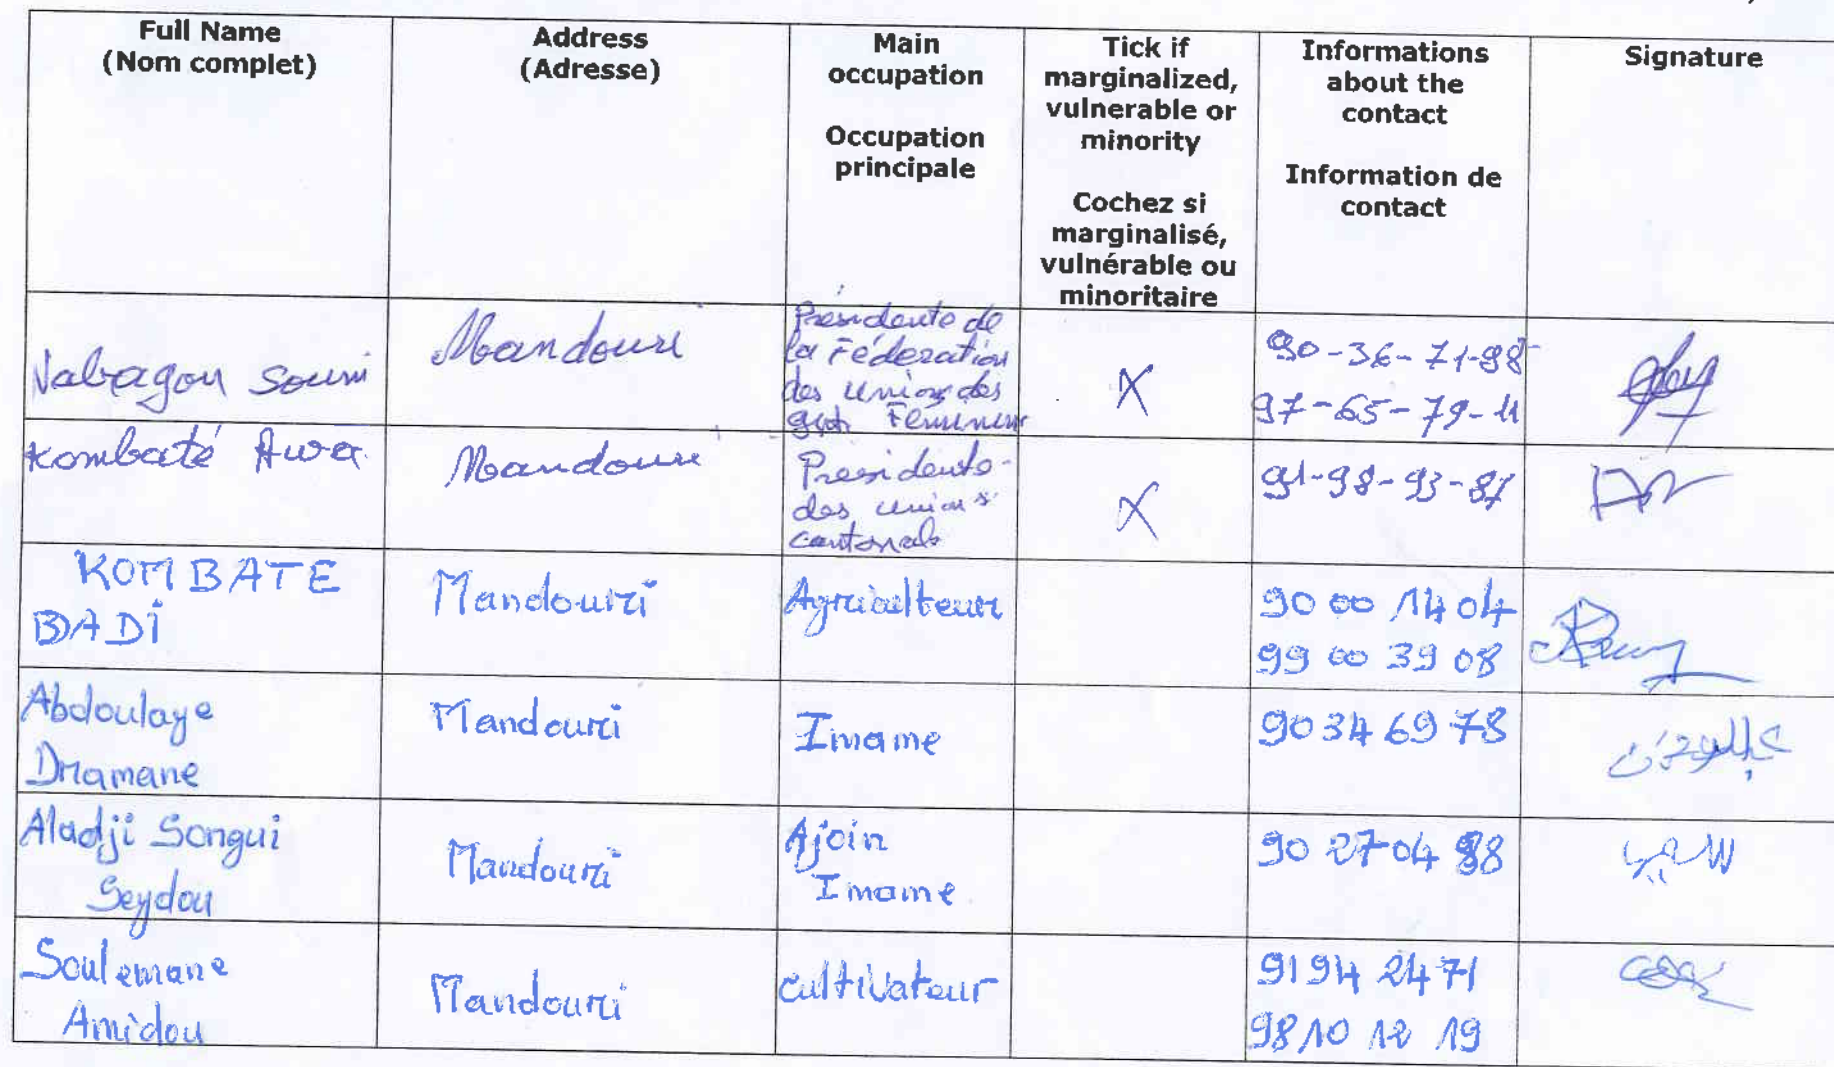 Full Name
(Nom complet)
Address
(Adresse)
Main
occupation
Occupation
principale
Tick if
marginalized,
vulnerable or
minority
Cochez si
marginalisé,
vulnérable ou
minoritaire
Informations
about the
contact
Information de
contact
Signature
Nabagou Soumi
Mandouri
Présidente de
la Féderation
des Unions des
gpts Feminin
X
90-36-71-98
97-65-79-11
Kombaté Awa
Mandouri
Presidente
des unions
cantonals
X
91-98-93-87
KOMBATE
BADI
Mandouri
Agriculteur
90 00 14 04
99 00 39 08
Abdoulaye
Dramane
Mandouri
Imame
90 34 69 78
Aladji Songui
Seydou
Mandouri
Ajoin
Imame
90 27 04 88
Soulemane
Amidou
Mandouri
cultivateur
91 94 24 71
98 10 12 19